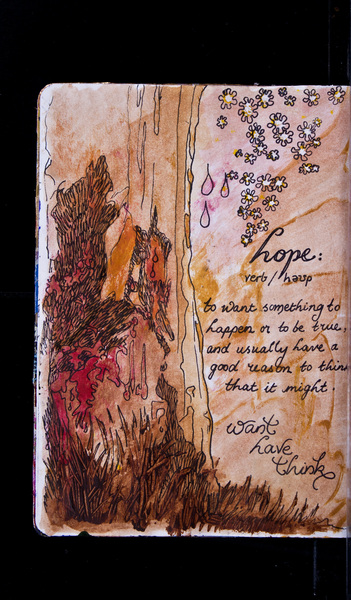 hope:
verb / həʊp
to want something to
happen or to be true,
and usually have a
good reason to think
that it might.
want
have
think